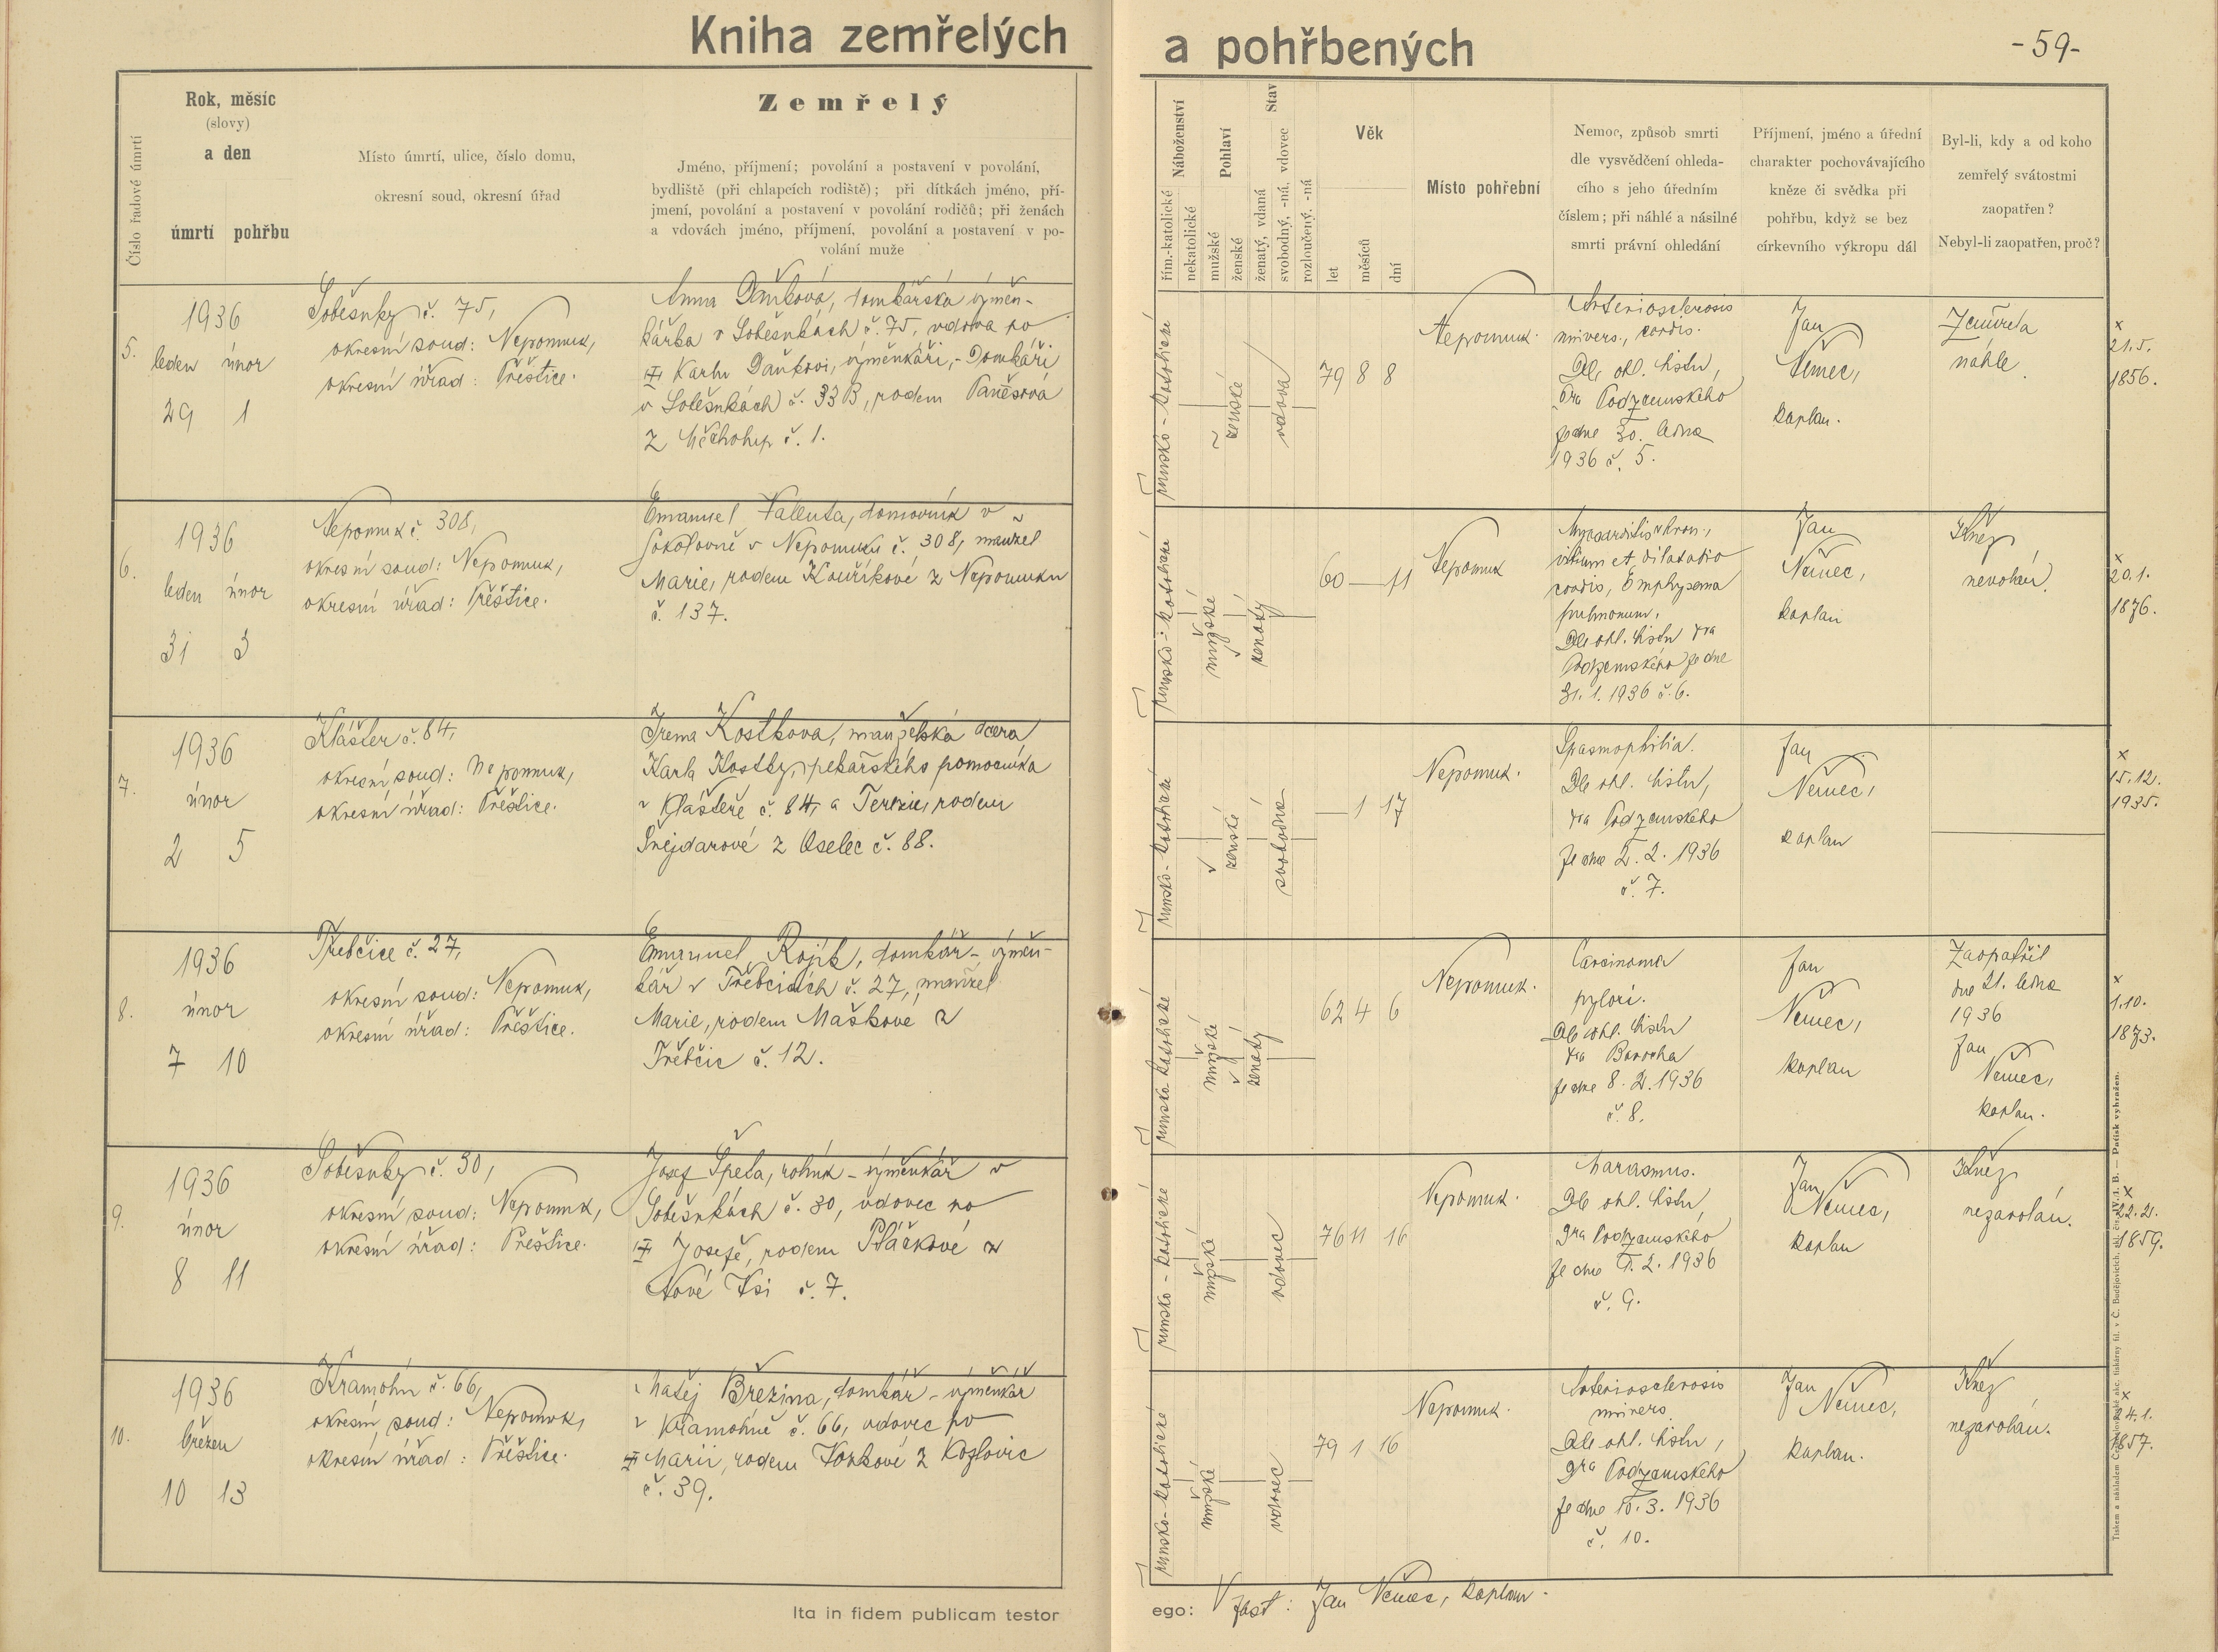 Kniha zemřelých a pohřbených
-59-
Číslo řadové úmrtí
Rok, měsíc
(slovy)
a den
úmrtí pohřbu
Místo úmrtí, ulice, číslo domu,
okresní soud, okresní úřad
Zemřelý
Jméno, příjmení; povolání a postavení v povolání,
bydliště (při chlapcích rodiště); při dítkách jméno, pří-
jmení, povolání a postavení v povolání rodičů; při ženách
a vdovách jméno, příjmení, povolání a postavení v po-
volání muže
Náboženství
řím.-katolické
nekatolické
Pohlaví
mužské
ženské
Stav
ženatý, vdaná
svobodný, -ná, vdovec
rozloučený, -ná
Věk
let
měsíců
dní
Místo pohřební
Nemoc, způsob smrti
dle vysvědčení ohleda-
cího s jeho úředním
číslem; při náhlé a násilné
smrti právní ohledání
Příjmení, jméno a úřední
charakter pochovávajícího
kněze či svědka při
pohřbu, když se bez
církevního výkropu dál
Byl-li, kdy a od koho
zemřelý svátostmi
zaopatřen?
Nebyl-li zaopatřen, proč?
5.
1936
leden únor
29 1
Soběsuky č. 75,
okresní soud: Nepomuk,
okresní úřad: Přeštice.
Anna Daňková, domkářská výměn-
kářka v Soběsukách č. 75, vdova po
Karlu Daňkovi, výměnkáři, - Domkáři
v Soběsukách č. 33 B, rodem
z č. 1.
římsko-katolické
ženské
vdova
79 8 8
Nepomuk.
Arteriosclerosis
univers., cordis.
Dle ohl. listu,
Dra Podzemského
ze dne 30. ledna
1936 č. 5.
Jan
Němec,
kaplan.
Zemřela
náhle.
×
21.5.
1856.
6.
1936
leden únor
31 3
Nepomuk č. 308,
okresní soud: Nepomuk,
okresní úřad: Přeštice.
Emanuel Valenta, domovník v
Sokolovně v Nepomuku č. 308, manžel
Marie, rodem Kouříkové z Nepomuku
č. 137.
římsko-katolické
mužské
ženatý
60 — 11
Nepomuk
Myocarditis chron.,
vitium et dilatatio
cordis, Emphysema
pulmonum.
Dle ohl. listu dra
Podzemského ze dne
31. 1. 1936 č. 6.
Jan
Němec,
kaplan
Kněz
nevolán.
×
20.1.
1876.
7.
1936
únor
2 5
Klášter č. 84,
okresní soud: Nepomuk,
okresní úřad: Přeštice.
Irena Kostková, manželská dcera
Karla Kostky, pekařského pomocníka
v Klášteře č. 84, a Terezie, rodem
Šnejdarové z Oselec č. 88.
římsko-katolické
ženské
svobodná
— 1 17
Nepomuk.
Spasmophilia.
Dle ohl. listu,
dra Podzemského
ze dne 2. 2. 1936
č. 7.
Jan
Němec,
kaplan
×
15.12.
1935.
8.
1936
únor
7 10
Třebčice č. 27,
okresní soud: Nepomuk,
okresní úřad: Přeštice.
Emanuel Rojík, domkář - výměn-
kář v Třebčicích č. 27, manžel
Marie, rodem Maškové z
Třebčic č. 12.
římsko-katolické
mužské
ženatý
62 4 6
Nepomuk.
Carcinoma
pylori.
Dle ohl. listu
dra
ze dne 8. 2. 1936
č. 8.
Jan
Němec,
kaplan
Zaopatřil
dne 21. ledna
1936
Jan
Němec,
kaplan.
×
1.10.
1873.
9.
1936
únor
8 11
Soběsuky č. 30,
okresní soud: Nepomuk,
okresní úřad: Přeštice.
Josef Špeta, rolník - výměnkář v
Soběsukách č. 30, vdovec po
Josefě, rodem Ptáčkové z
Nové Vsi č. 7.
římsko-katolické
mužské
vdovec
76 11 16
Nepomuk.
Marasmus.
Dle ohl. listu,
Dra Podzemského
ze dne 9. 2. 1936
č. 9.
Jan
Němec,
kaplan
Kněz
nezavolán.
×
22.2.
1859.
10.
1936
březen
10 13
Kramolín č. 66,
okresní soud: Nepomuk,
okresní úřad: Přeštice.
Matěj Březina, domkář - výměnkář
v Kramolíně č. 66, vdovec po
Marii, rodem z Kozlovic
č. 39.
římsko-katolické
mužské
vdovec
79 1 16
Nepomuk.
Arteriosclerosis
univers.
Dle ohl. listu,
Dra Podzemského
ze dne 10. 3. 1936
č. 10.
Jan
Němec,
kaplan.
Kněz
nezavolán.
×
24.1.
1857.
Ita in fidem publicam testor ego: V zast: Jan Němec, kaplan.